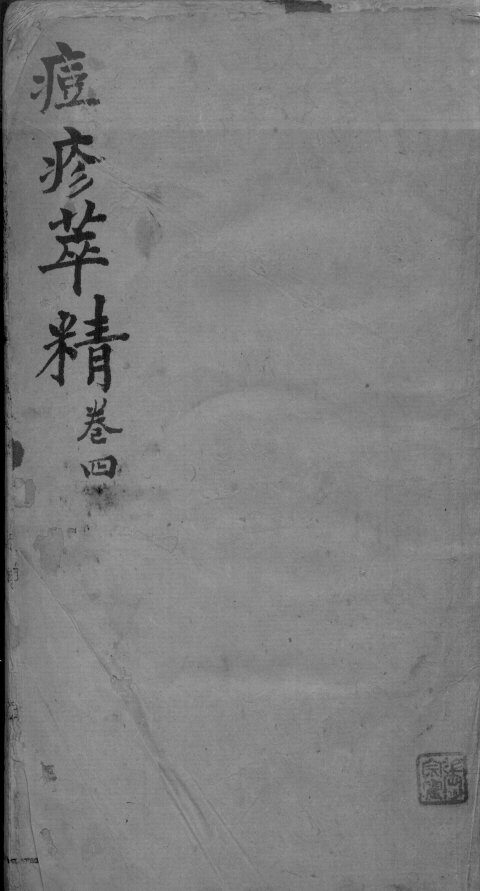 痘疹萃精
卷四